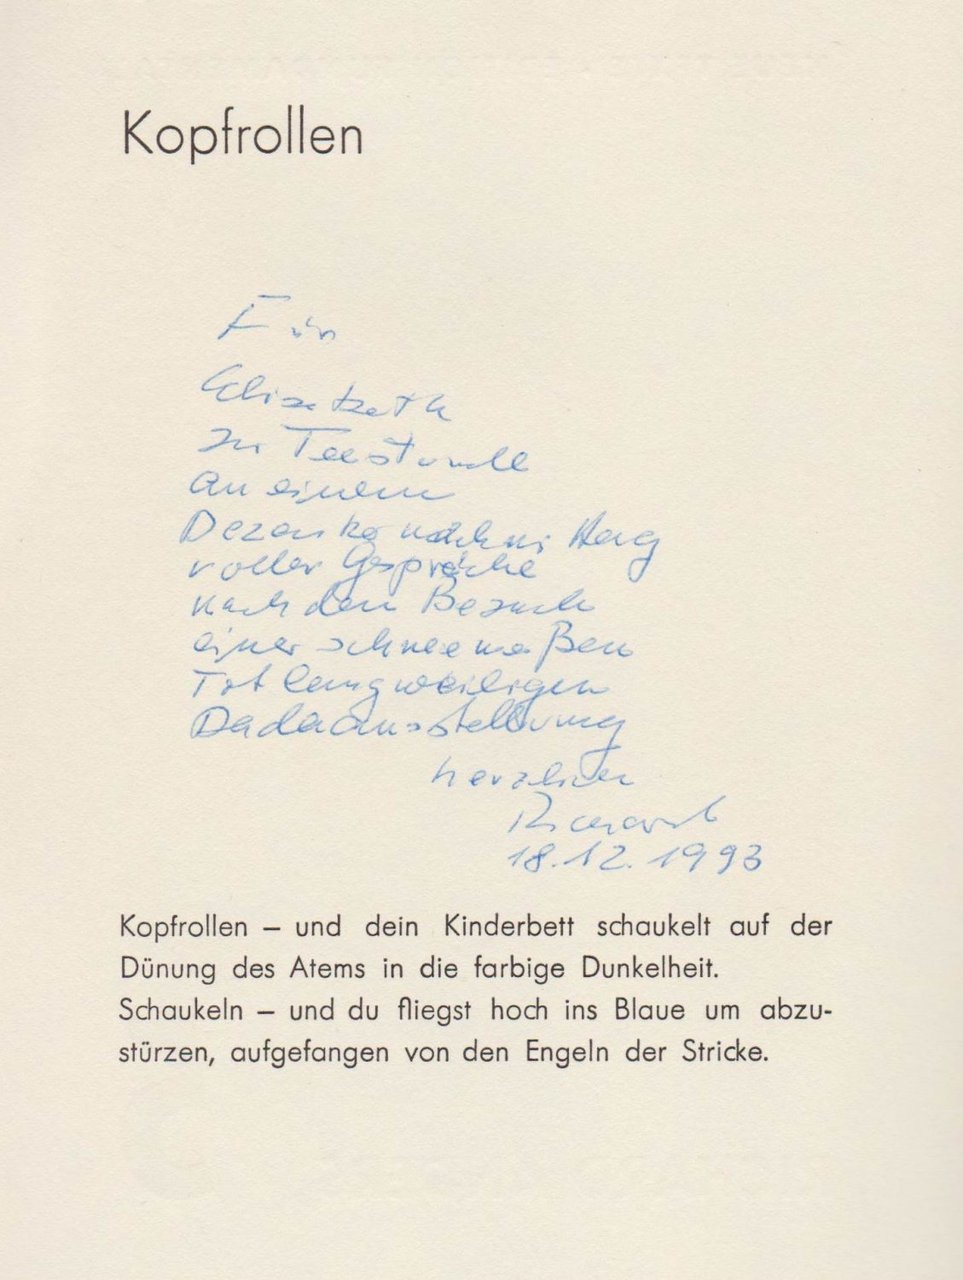 Kopfrollen
Für
Elisabeth
zur Teestunde
an einem
Dezembernachmittag
voller Gespräche
nach dem Besuch
einer
Totlangweiligen
Dadaausstellung
herzlich
18.12.1993
Kopfrollen – und dein Kinderbett schaukelt auf der
Dünung des Atems in die farbige Dunkelheit.
Schaukeln – und du fliegst hoch ins Blaue um abzu-
stürzen, aufgefangen von den Engeln der Stricke.